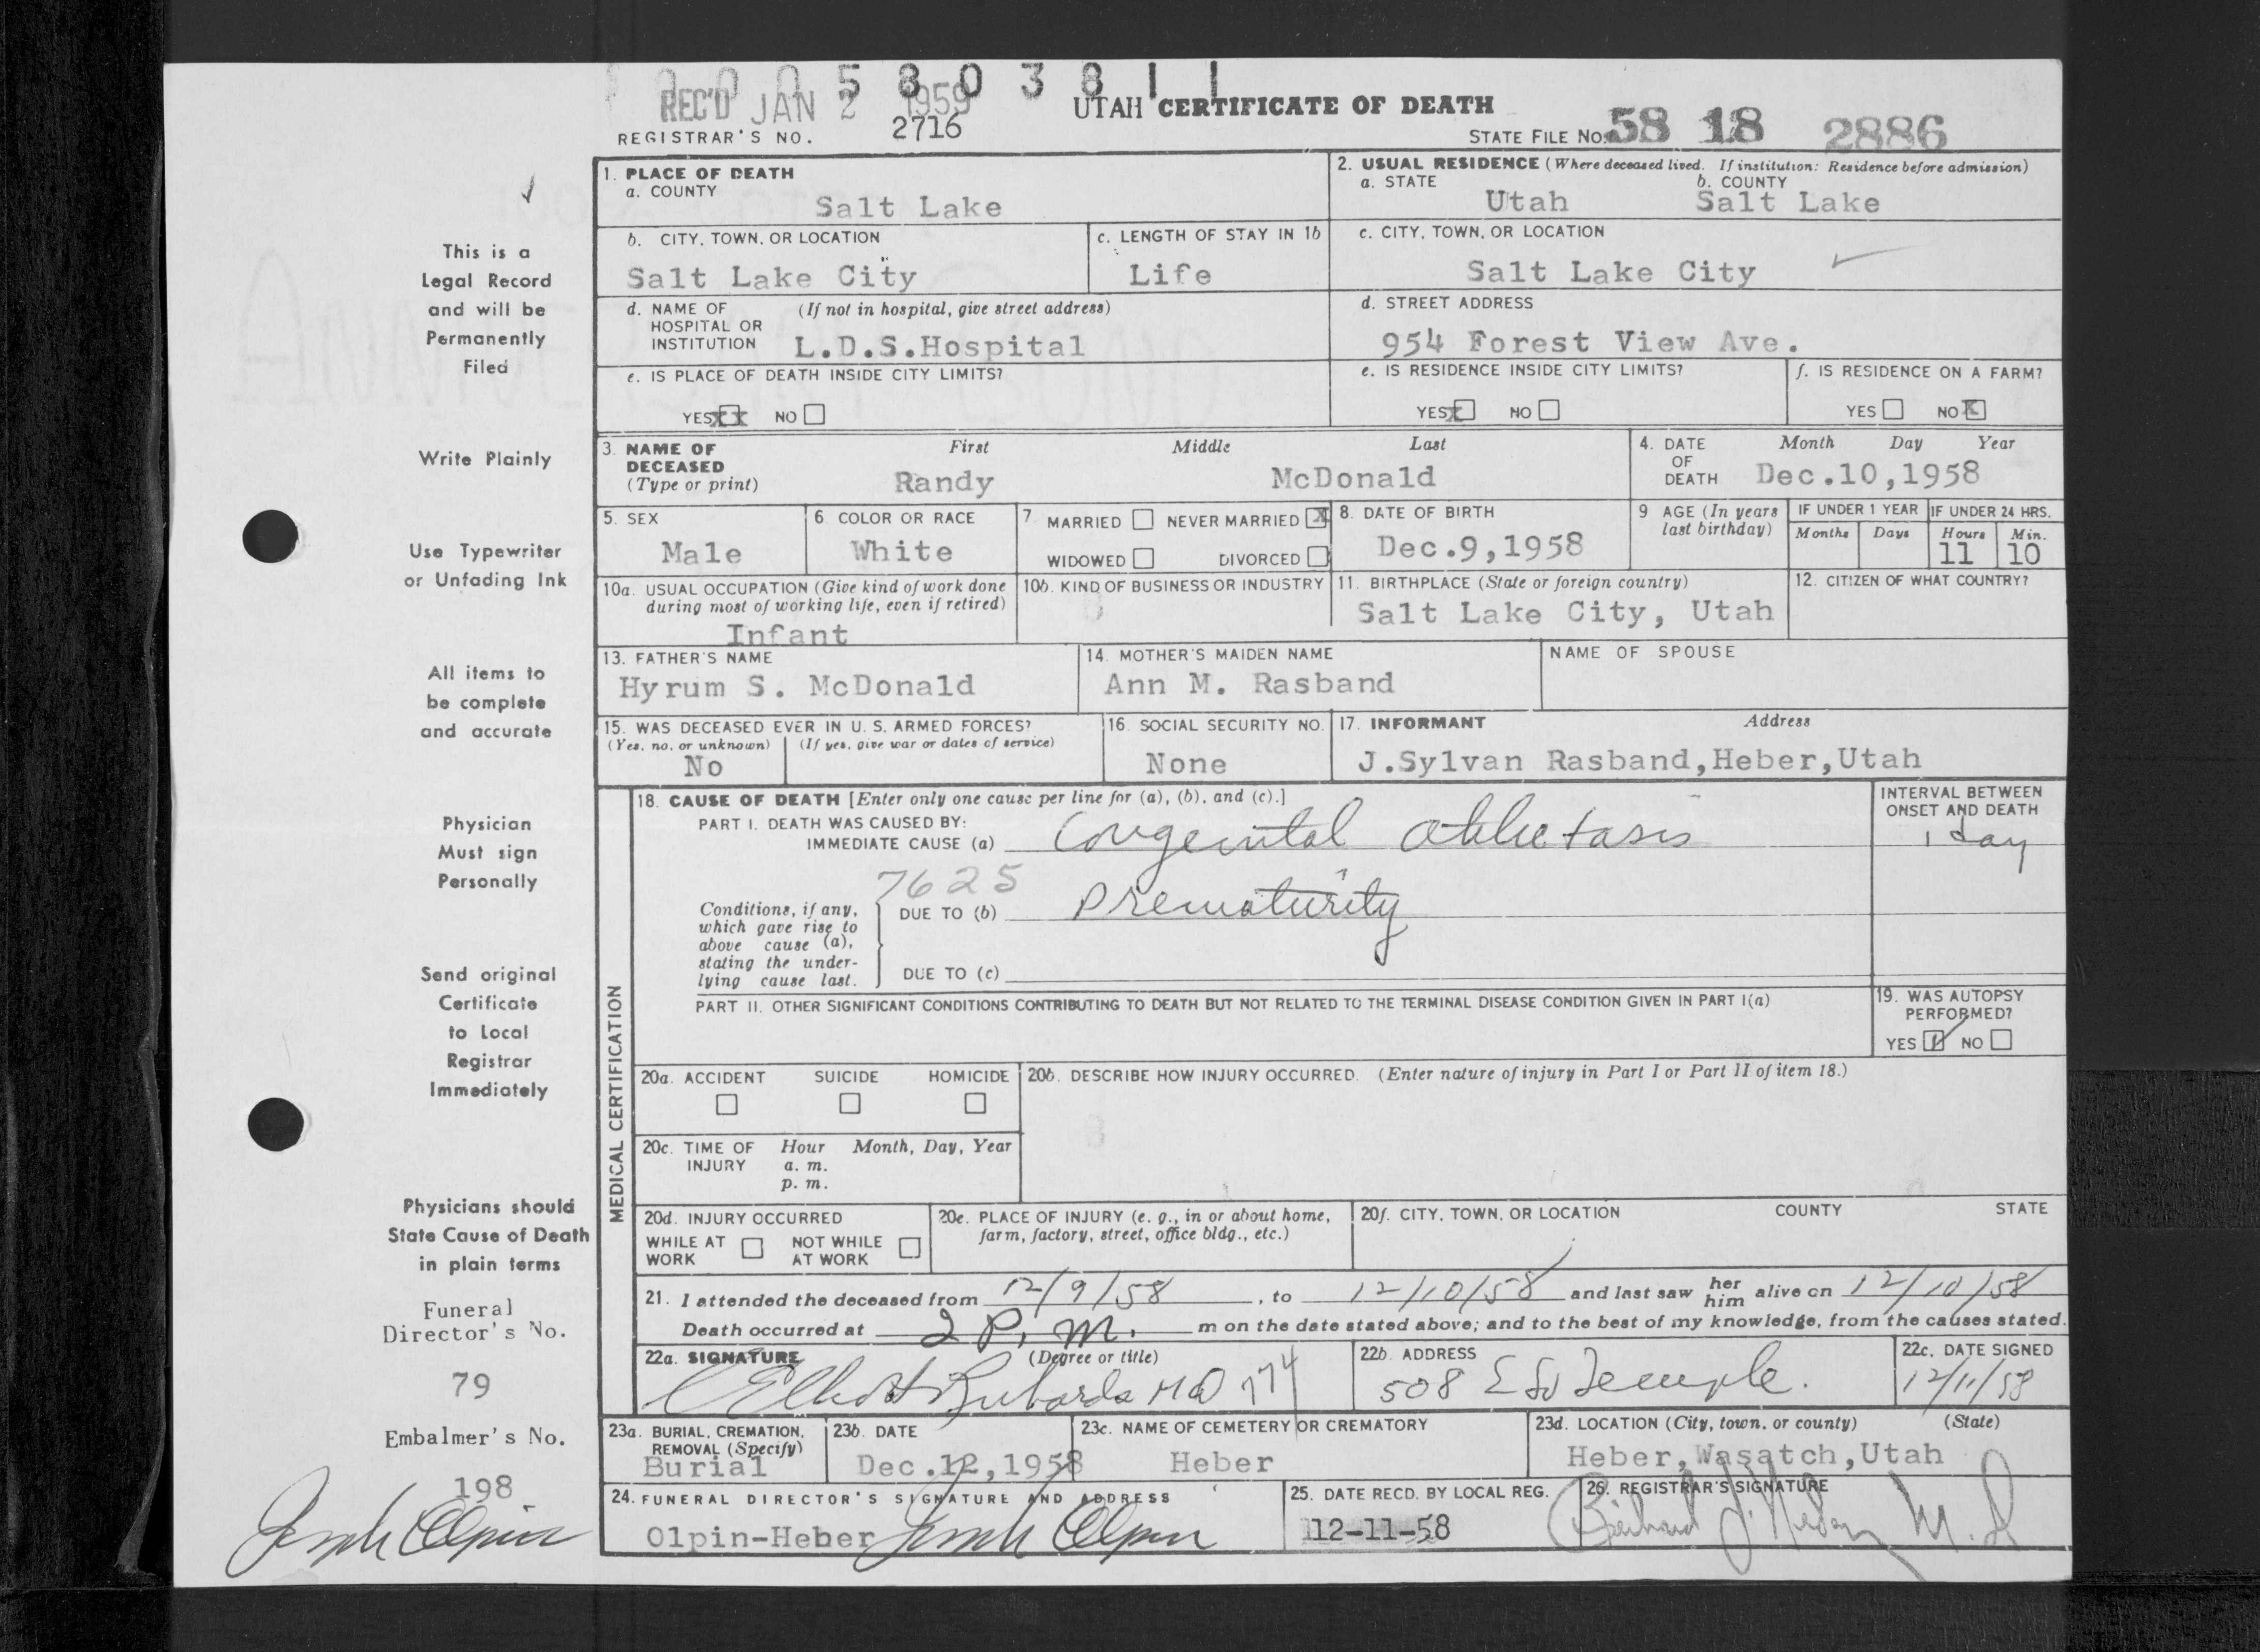 0 0 5 8 0 3 8 1 1
REC'D JAN 2 1959
UTAH CERTIFICATE OF DEATH
REGISTRAR'S NO. 2716
STATE FILE NO. 58 18 2886
1. PLACE OF DEATH
a. COUNTY
Salt Lake
2. USUAL RESIDENCE (Where deceased lived. If institution: Residence before admission)
a. STATE b. COUNTY
Utah Salt Lake
b. CITY, TOWN, OR LOCATION
Salt Lake City
c. LENGTH OF STAY IN 1b
Life
c. CITY, TOWN, OR LOCATION
Salt Lake City
d. NAME OF (If not in hospital, give street address)
HOSPITAL OR
INSTITUTION L.D.S.Hospital
d. STREET ADDRESS
954 Forest View Ave.
e. IS PLACE OF DEATH INSIDE CITY LIMITS?
YES XX NO
e. IS RESIDENCE INSIDE CITY LIMITS?
YES X NO
f. IS RESIDENCE ON A FARM?
YES NO X
3. NAME OF First Middle Last
DECEASED
(Type or print) Randy McDonald
4. DATE Month Day Year
OF
DEATH Dec.10,1958
5. SEX
Male
6. COLOR OR RACE
White
7. MARRIED NEVER MARRIED X
WIDOWED DIVORCED
8. DATE OF BIRTH
Dec.9,1958
9 AGE (In years
last birthday)
IF UNDER 1 YEAR
Months Days
IF UNDER 24 HRS.
Hours Min.
11 10
10a. USUAL OCCUPATION (Give kind of work done
during most of working life, even if retired)
Infant
10b. KIND OF BUSINESS OR INDUSTRY
11. BIRTHPLACE (State or foreign country)
Salt Lake City, Utah
12. CITIZEN OF WHAT COUNTRY?
13. FATHER'S NAME
Hyrum S. McDonald
14. MOTHER'S MAIDEN NAME
Ann M. Rasband
NAME OF SPOUSE
15. WAS DECEASED EVER IN U.S. ARMED FORCES?
(Yes, no, or unknown) (If yes, give war or dates of service)
No
16. SOCIAL SECURITY NO.
None
17. INFORMANT Address
J.Sylvan Rasband,Heber,Utah
MEDICAL CERTIFICATION
18. CAUSE OF DEATH [Enter only one cause per line for (a), (b), and (c).]
PART I. DEATH WAS CAUSED BY:
IMMEDIATE CAUSE (a) Congenital
INTERVAL BETWEEN
ONSET AND DEATH
1 day
7625
Conditions, if any,
which gave rise to
above cause (a),
stating the under-
lying cause last.
DUE TO (b) Prematurity
DUE TO (c)
PART II. OTHER SIGNIFICANT CONDITIONS CONTRIBUTING TO DEATH BUT NOT RELATED TO THE TERMINAL DISEASE CONDITION GIVEN IN PART I(a)
19. WAS AUTOPSY
PERFORMED?
YES NO
20a. ACCIDENT SUICIDE HOMICIDE
20b. DESCRIBE HOW INJURY OCCURRED. (Enter nature of injury in Part I or Part II of item 18.)
20c. TIME OF Hour Month, Day, Year
INJURY a. m.
p. m.
20d. INJURY OCCURRED
WHILE AT NOT WHILE
WORK AT WORK
20e. PLACE OF INJURY (e. g., in or about home,
farm, factory, street, office bldg., etc.)
20f. CITY, TOWN, OR LOCATION COUNTY STATE
21. I attended the deceased from 12/9/58, to 12/10/58 and last saw her him alive on 12/10/58
Death occurred at 2 P. m. m on the date stated above; and to the best of my knowledge, from the causes stated.
22a. SIGNATURE (Degree or title)
Elliott Richards MD 774
22b. ADDRESS
508 E So Temple.
22c. DATE SIGNED
12/11/58
23a. BURIAL, CREMATION,
REMOVAL (Specify)
Burial
23b. DATE
Dec.12,1958
23c. NAME OF CEMETERY OR CREMATORY
Heber
23d. LOCATION (City, town, or county) (State)
Heber,Wasatch,Utah
24. FUNERAL DIRECTOR'S SIGNATURE AND ADDRESS
Olpin-Heber Olpin
25. DATE RECD. BY LOCAL REG.
12-11-58
26. REGISTRAR'S SIGNATURE
This is a
Legal Record
and will be
Permanently
Filed
Write Plainly
Use Typewriter
or Unfading Ink
All items to
be complete
and accurate
Physician
Must sign
Personally
Send original
Certificate
to Local
Registrar
Immediately
Physicians should
State Cause of Death
in plain terms
Funeral
Director's No.
79
Embalmer's No.
198
Olpin